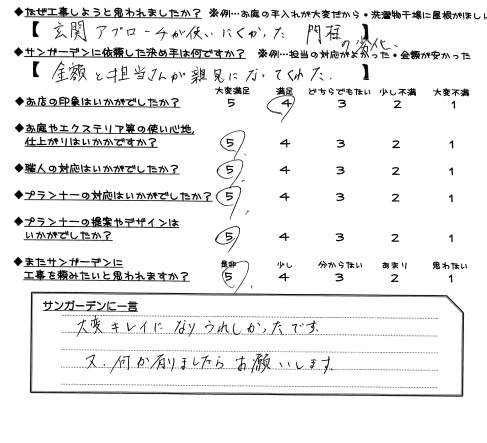 ◆なぜ工事しようと思われましたか? ※例…お庭の手入れが大変だから・洗濯物干場に屋根がほし
【玄関アプローチが使いにくかった 門柱の劣化、】
◆サンガーデンに依頼した決め手は何ですか? ※例…担当の対応がよかった・金額が安かった
【金額と担当さんが親見になってくれた.】
大変満足 満足 どちらでもない 少し不満 大変不満
◆お店の印象はいかがでしたか? 5 4 3 2 1
◆お庭やエクステリア等の使い心地,
仕上がりはいかかですか? 5 4 3 2 1
◆職人の対応はいかがでしたか? 5 4 3 2 1
◆プランナーの対応はいかがでしたか? 5 4 3 2 1
◆プランナーの提案やデザインは
いかがでしたか? 5 4 3 2 1
◆またサンガーデンに 是非 少し 分からない あまり 思わない
工事を頼みたいと思われますか? 5 4 3 2 1
サンガーデンに一言
大変キレイになりうれしかったです.
又、何か有りましたらお願いします.